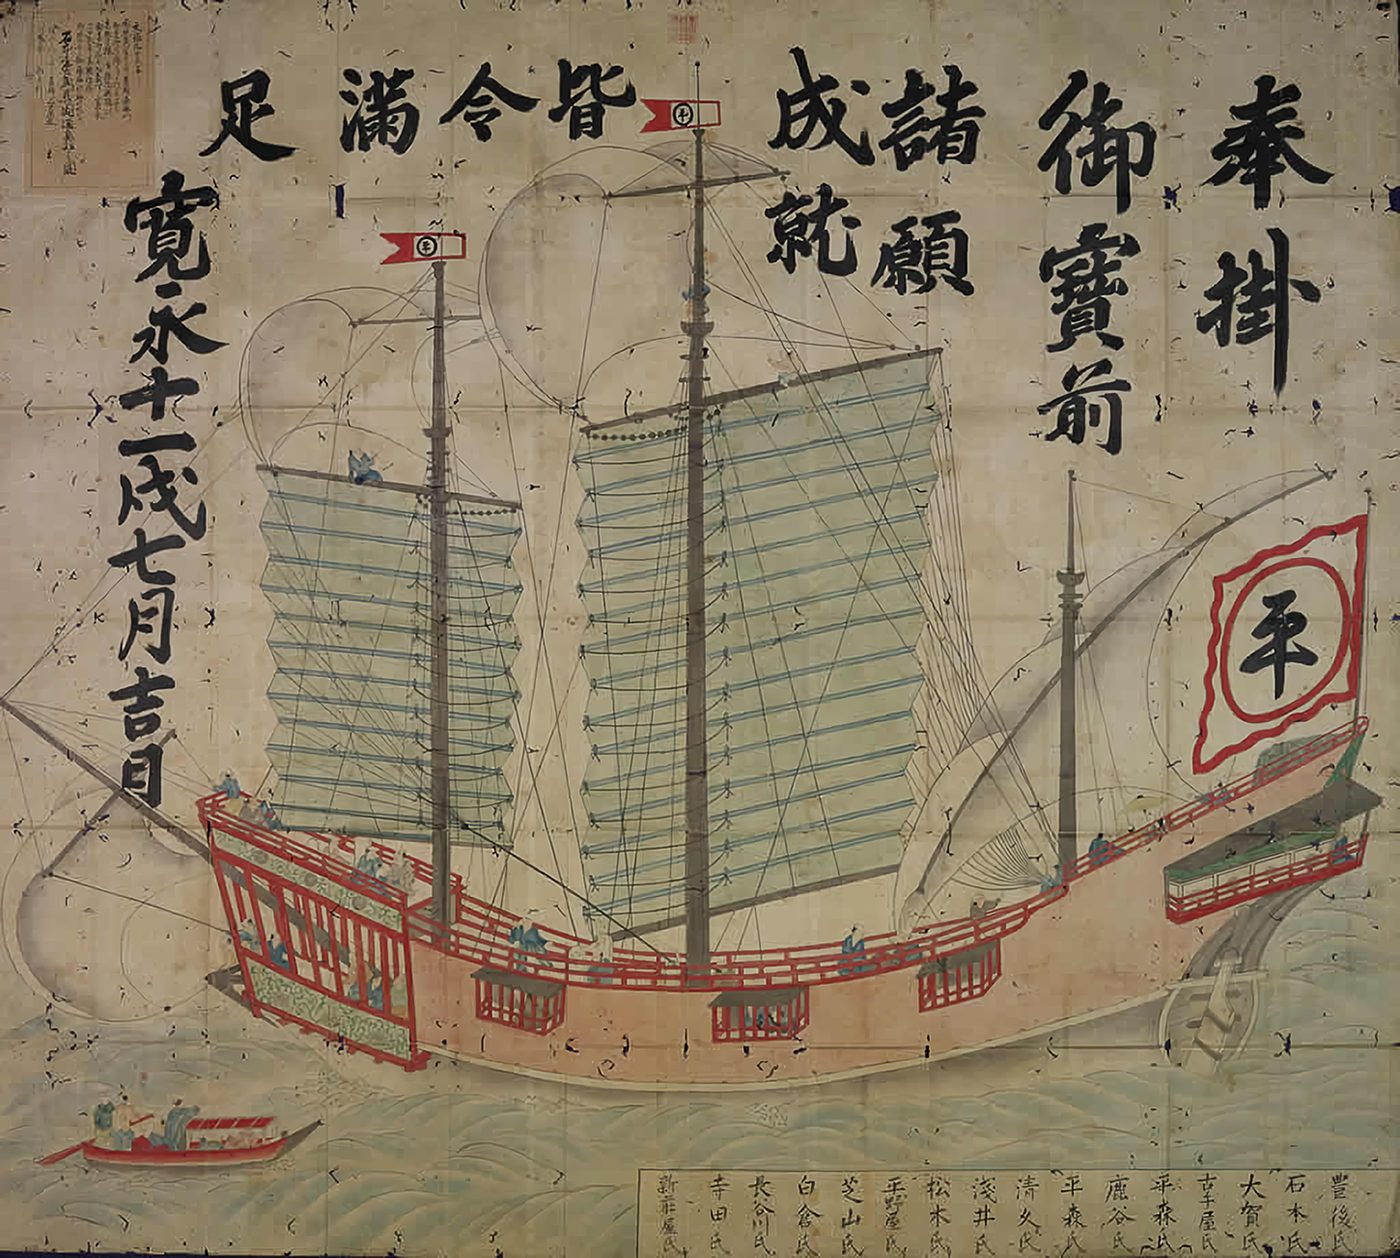 奉掛
御寶前
諸願
成就
皆令滿足
寛永十一戌七月吉日
平
平
平
豊後氏
石本氏
大賀氏
古手屋氏
平森氏
鹿谷氏
平森氏
清久氏
淺井氏
松木氏
平野屋氏
芝山氏
白倉氏
長谷川氏
寺田氏
新莊屋氏